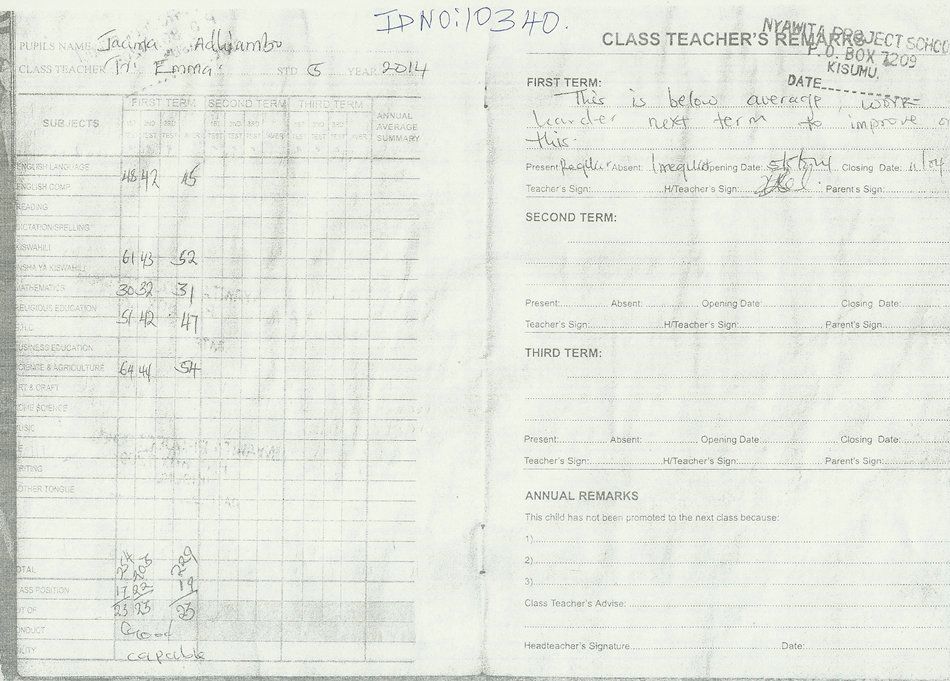 ID NO: 10340.
PUPILS NAME Jacinta Adhiambo
CLASS TEACHER Tr. Emma. STD 5 YEAR 2014
FIRST TERM SECOND TERM THIRD TERM
SUBJECTS
ANNUAL AVERAGE SUMMARY
ENGLISH LANGUAGE
ENGLISH COMP 48 42 45
READING
DICTATION/SPELLING
KISWAHILI
INSHA YA KISWAHILI 61 43 52
MATHEMATICS 30 32 31
RELIGIOUS EDUCATION
51 42 47
BUSINESS EDUCATION
SCIENCE & AGRICULTURE 64 44 54
ART & CRAFT
HOME SCIENCE
MUSIC
WRITING
MOTHER TONGUE
TOTAL 203 229
CLASS POSITION 17 22 19
OUT OF 23 23 23
CONDUCT Good
ABILITY capable
CLASS TEACHER'S REMARKS
NYAWITA PROJECT SCHOO
P.O. BOX 7209
KISUMU.
DATE
FIRST TERM:
This is below average, work
harder next term to improve o
this.
Present Regular Absent: Irregular Opening Date: 5/5/14 Closing Date: 11/04
Teacher's Sign: H/Teacher's Sign: Parent's Sign:
SECOND TERM:
Present: Absent: Opening Date: Closing Date:
Teacher's Sign: H/Teacher's Sign: Parent's Sign:
THIRD TERM:
Present: Absent: Opening Date: Closing Date:
Teacher's Sign: H/Teacher's Sign: Parent's Sign:
ANNUAL REMARKS
This child has not been promoted to the next class because:
1)
2)
3)
Class Teacher's Advise:
Headteacher's Signature Date: